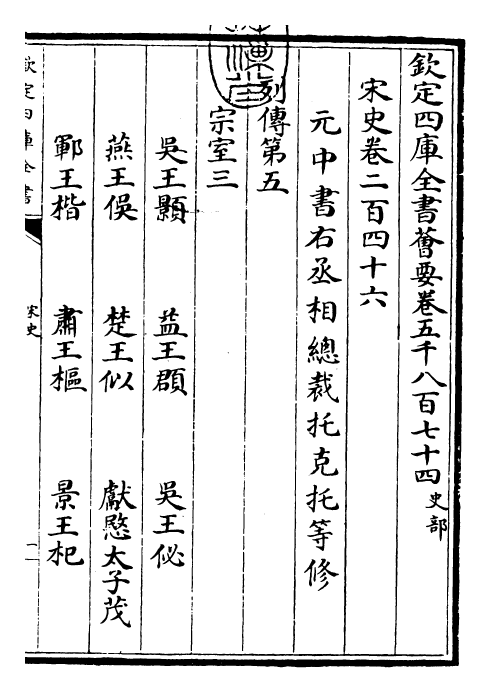 欽定四庫全書薈要卷五千八百七十四史部
宋史卷二百四十六
元中書右丞相總裁托克托等修
列傳第五
宗室三
吳王顥 益王頵 吳王佖
燕王俁 楚王似 獻愍太子茂
鄆王楷 肅王樞 景王杞
欽定四庫全書
宋史
一